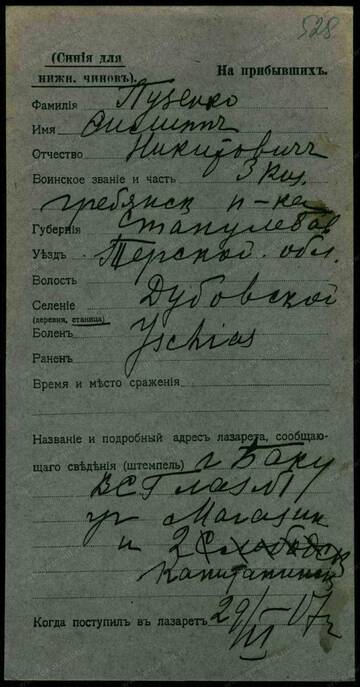 528
(Синія для
нижн. чиновъ).
На прибывшихъ.
Фамилія Пузенко
Имя
Отчество Никитовичъ
Воинское званіе и часть 3 Киз.
гребянск п-ка
Губернія
Уѣздъ Терской обл.
Волость
Селеніе Дубовской
(деревня, станица)
Боленъ Ischias
Раненъ
Время и мѣсто сраженія
Названіе и подробный адресъ лазарета, сообщаю-
щаго свѣдѣнія (штемпель) г Баку
ВСГ лаз №1
уг Магазин
и 2
Когда поступилъ въ лазаретъ 29/III–17 г